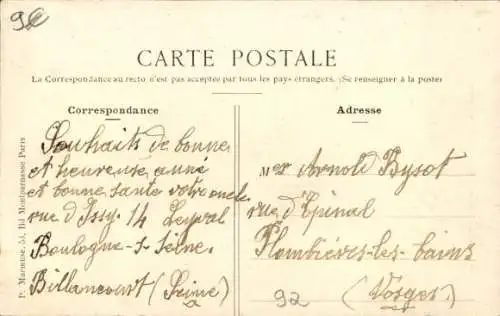 92
CARTE POSTALE
La Correspondance au recto n'est pas acceptée par tous les pays étrangers. (Se renseigner à la poste)
Correspondance
Souhaits de bonne
et heureuse anné
et bonne sante votre oncle
rue d'Issy. 14
Boulogne-s-Seine.
Billancourt (Seine)
Adresse
Mer Arnold Bysot
rue d'Epinal
Plombières-les-bains
(Vosges)
92
P. Marmuse, 51, Bd Montparnasse Paris